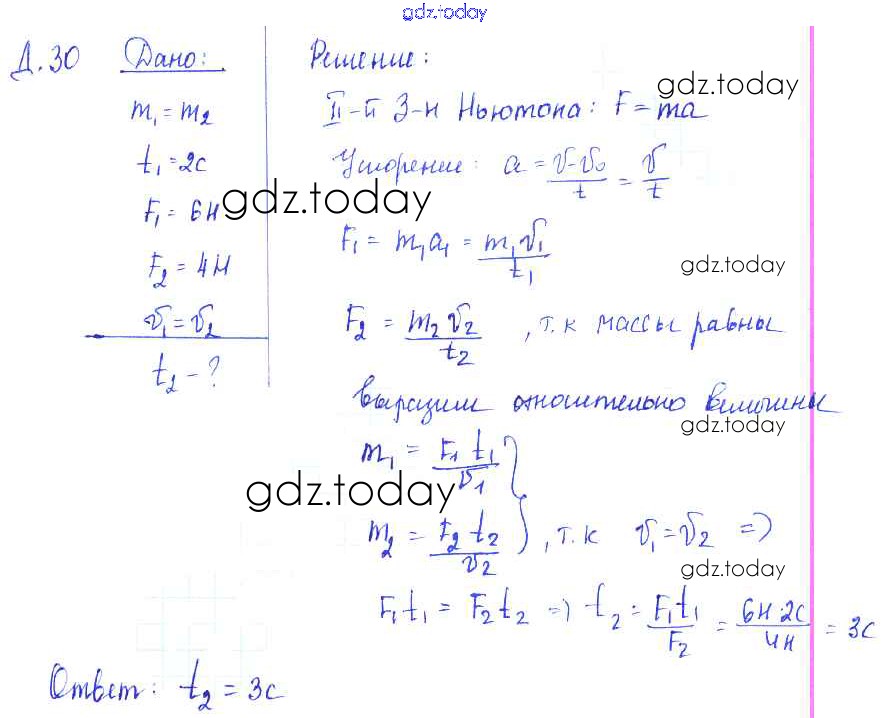 gdz.today
Д.30 Дано:
m₁ = m₂
t₁ = 2с
F₁ = 6Н
F₂ = 4Н
v₁ = v₂
t₂ - ?
Решение:
gdz.today
II-й З-н Ньютона: F = ma
Ускорение: a = (v - v₀)/t = v/t
gdz.today
F₁ = m₁a₁ = m₁v₁/t₁
gdz.today
F₂ = m₂v₂/t₂, т.к массы равны
выразим относительно величины
gdz.today
m₁ = F₁t₁/v₁ }
gdz.today
m₂ = F₂t₂/v₂ }, т.к v₁ = v₂ =>
gdz.today
F₁t₁ = F₂t₂ => t₂ = F₁t₁/F₂ = 6Н·2с/4Н = 3с
Ответ: t₂ = 3с